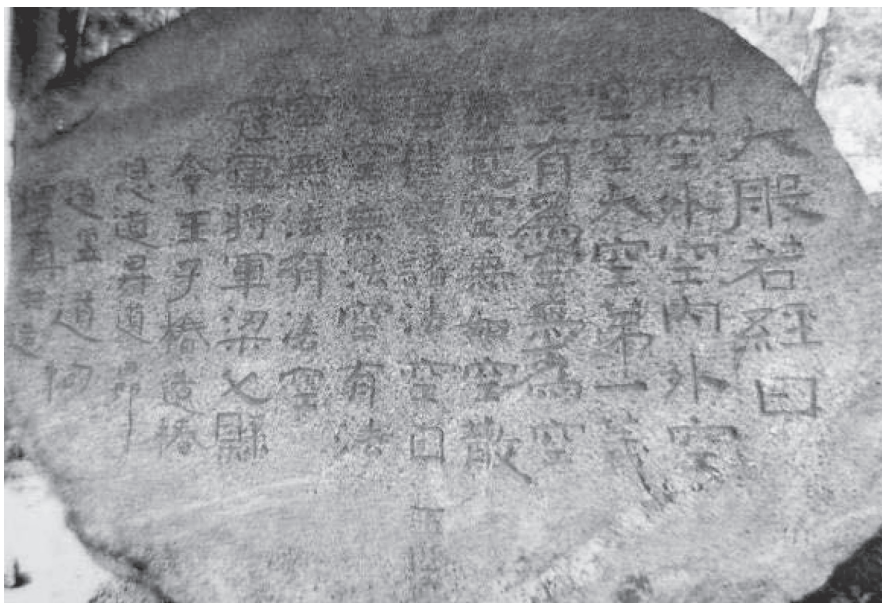 大般若經曰
内空外空内外空
空空大空第一義
空有為空無為空
畢竟空無始空散
空性空諸法空自
相空無法空有法
空無法有法空
冠軍將軍梁父縣
令王子椿造椿
息道昇道昂
道昱道恂
僧真共造